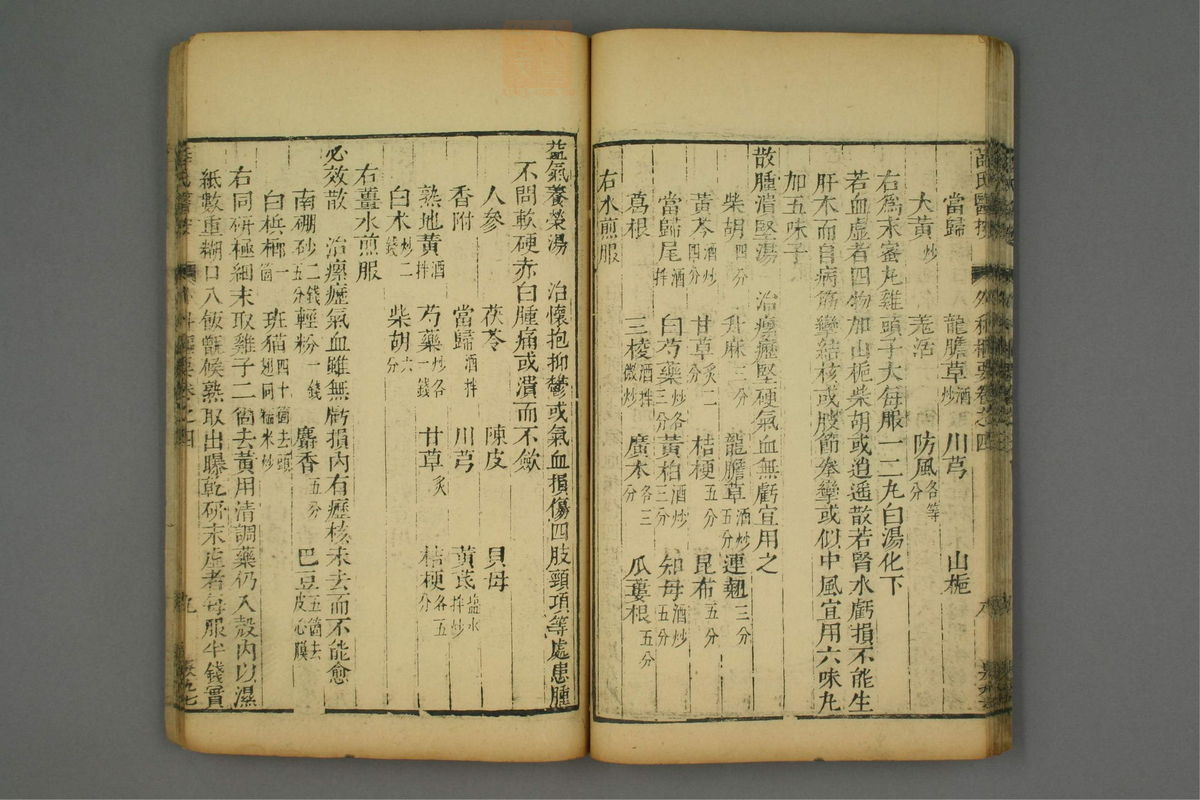 薛氏醫按 外科樞要卷之四 八
當歸 龍膽草酒炒 川芎 山梔
大黃炒 羗活 防風各等分
右爲末蜜丸雞頭子大每服一二丸白湯化下
若血虛者四物加山梔柴胡或逍遥散若腎水虧損不能生
肝木而自病筋攣結核或肢節拳攣或似中風宜用六味丸
加五味子
散腫潰堅湯 治瘰癧堅硬氣血無虧宜用之
柴胡四分 升麻三分 龍膽草酒炒五分 連翹三分
黃芩酒炒四分 甘草炙二分 桔梗五分 昆布五分
當歸尾酒拌 白芍藥炒各三分 黃柏酒炒二分 知母酒炒五分
葛根 三棱酒拌微炒 廣木各三分 瓜蔞根五分
右水煎服
益氣養榮湯 治懷抱抑鬱或氣血損傷四肢頸項等處患腫
不問軟硬赤白腫痛或潰而不斂
人參 茯苓 陳皮 貝母
香附 當歸酒拌 川芎 黃芪鹽水拌炒
熟地黃酒拌 芍藥炒各一錢 甘草炙 桔梗各五分
白术炒二錢 柴胡六分
右薑水煎服
必效散 治瘰癧氣血雖無虧損內有癧核未去而不能愈
南硼砂二錢五分 輕粉一錢 麝香五分 巴豆五箇去皮心膜
白梹榔一箇 斑猫四十箇去頭翅同糯米炒
右同研極細末取雞子二箇去黃用清調藥仍入殼內以濕
紙數重糊口入飯甑候熟取出曝乾研末虛者每服半錢實
薛氏醫按 外科樞要卷之四 九